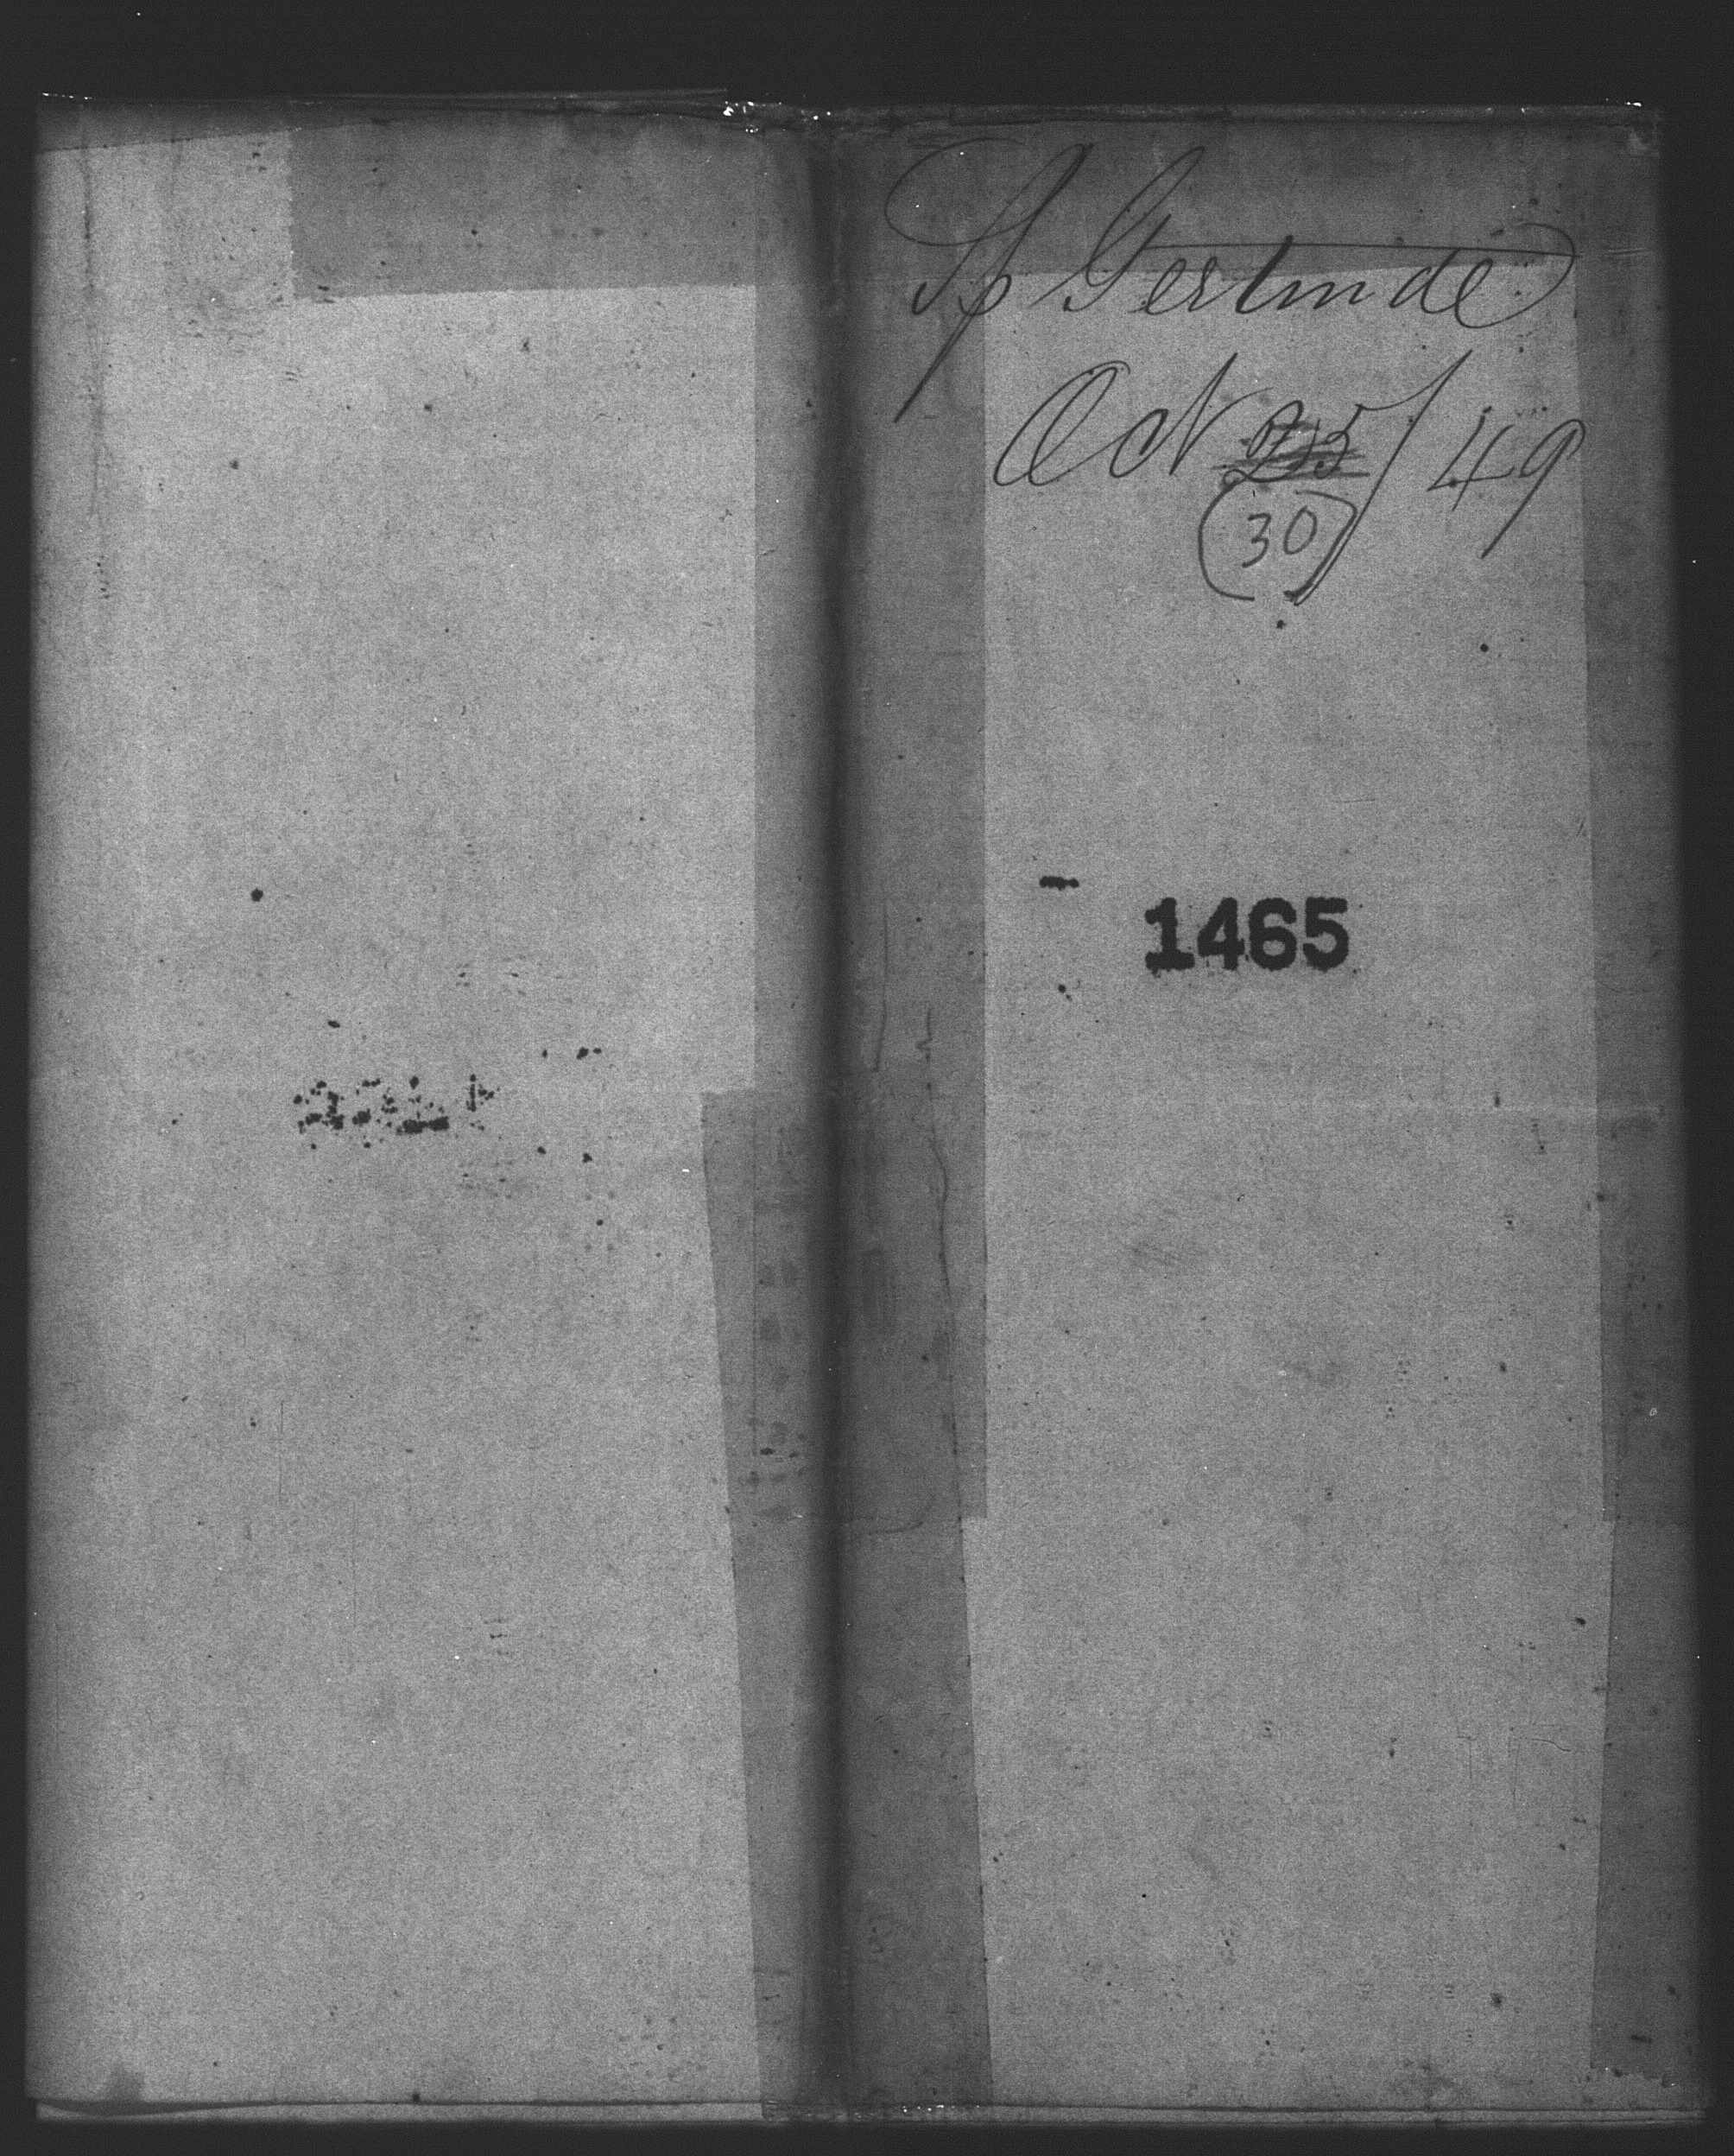 Sp Gertrude
Oct 25 / 49
(30)
1465